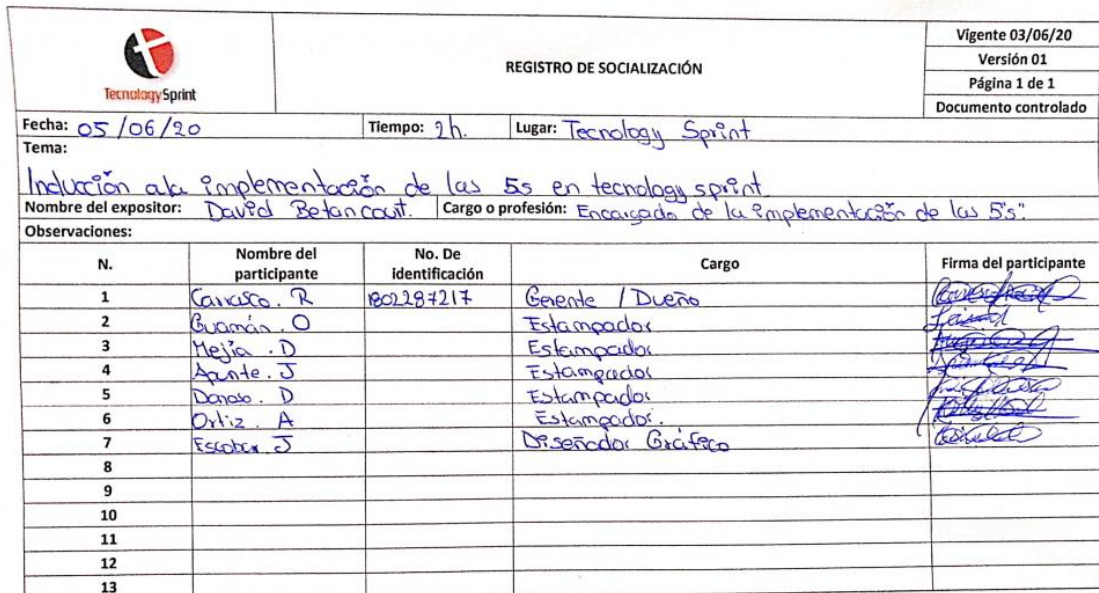 Tecnology Sprint
REGISTRO DE SOCIALIZACIÓN
Vigente 03/06/20
Versión 01
Página 1 de 1
Documento controlado
Fecha: 05/06/20 Tiempo: 2h. Lugar: Tecnology Sprint
Tema:
Inducción a la implementación de las 5s en tecnology sprint.
Nombre del expositor: David Betancourt. Cargo o profesión: Encargado de la implementación de las 5's".
Observaciones:
N. Nombre del participante No. De identificación Cargo Firma del participante
1 Carrasco. R 1802287217 Gerente / Dueño
2 Guamán. O Estampador
3 Mejía. D Estampador
4 Apunte. J Estampador
5 Donoso. D Estampador
6 Ortiz. A Estampador.
7 Escobar. J Diseñador Gráfico
8
9
10
11
12
13